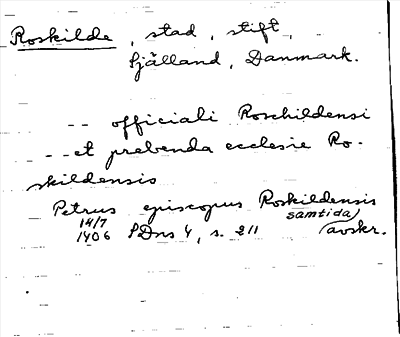 Roskilde, stad, stift,
Själland, Danmark.
-- officiali Roschildensi
-- et prebenda ecclesie Ro-
skildensis
Petrus episcopus Roskildensis
14/7 1406 SDns 1, s. 211 samtida avskr.